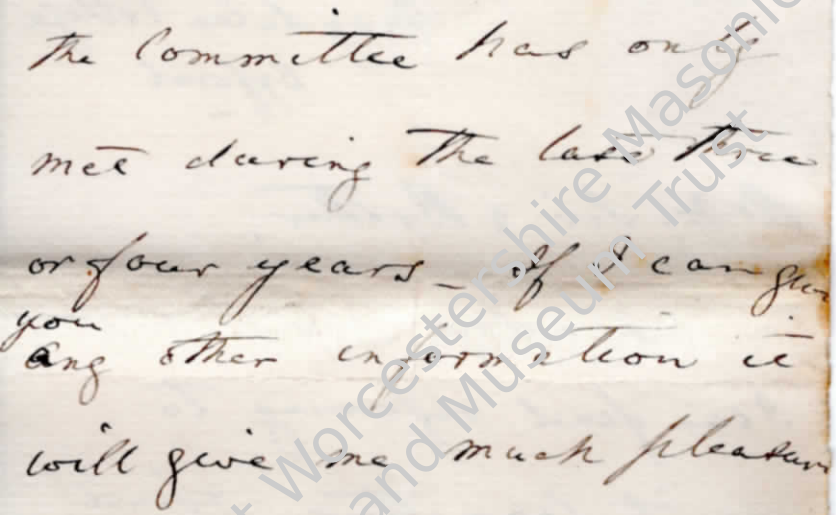 the Committee has only
met during the last three
or four years _ If I can give
you
any other information it
will give me much pleasure
Worcestershire Masonic
and Museum Trust